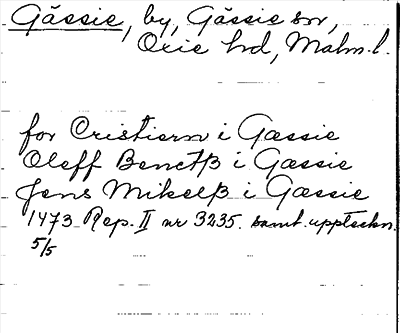 Gässie, by, Gässie sn,
Oxie hd, Malm. l.
for Cristiern i Gæssie
Oleff Benctß i Gæssie
Jens Mikelß i Gæssie
1473 Rep. II nr 3235. samt. uppteckn.
5/5